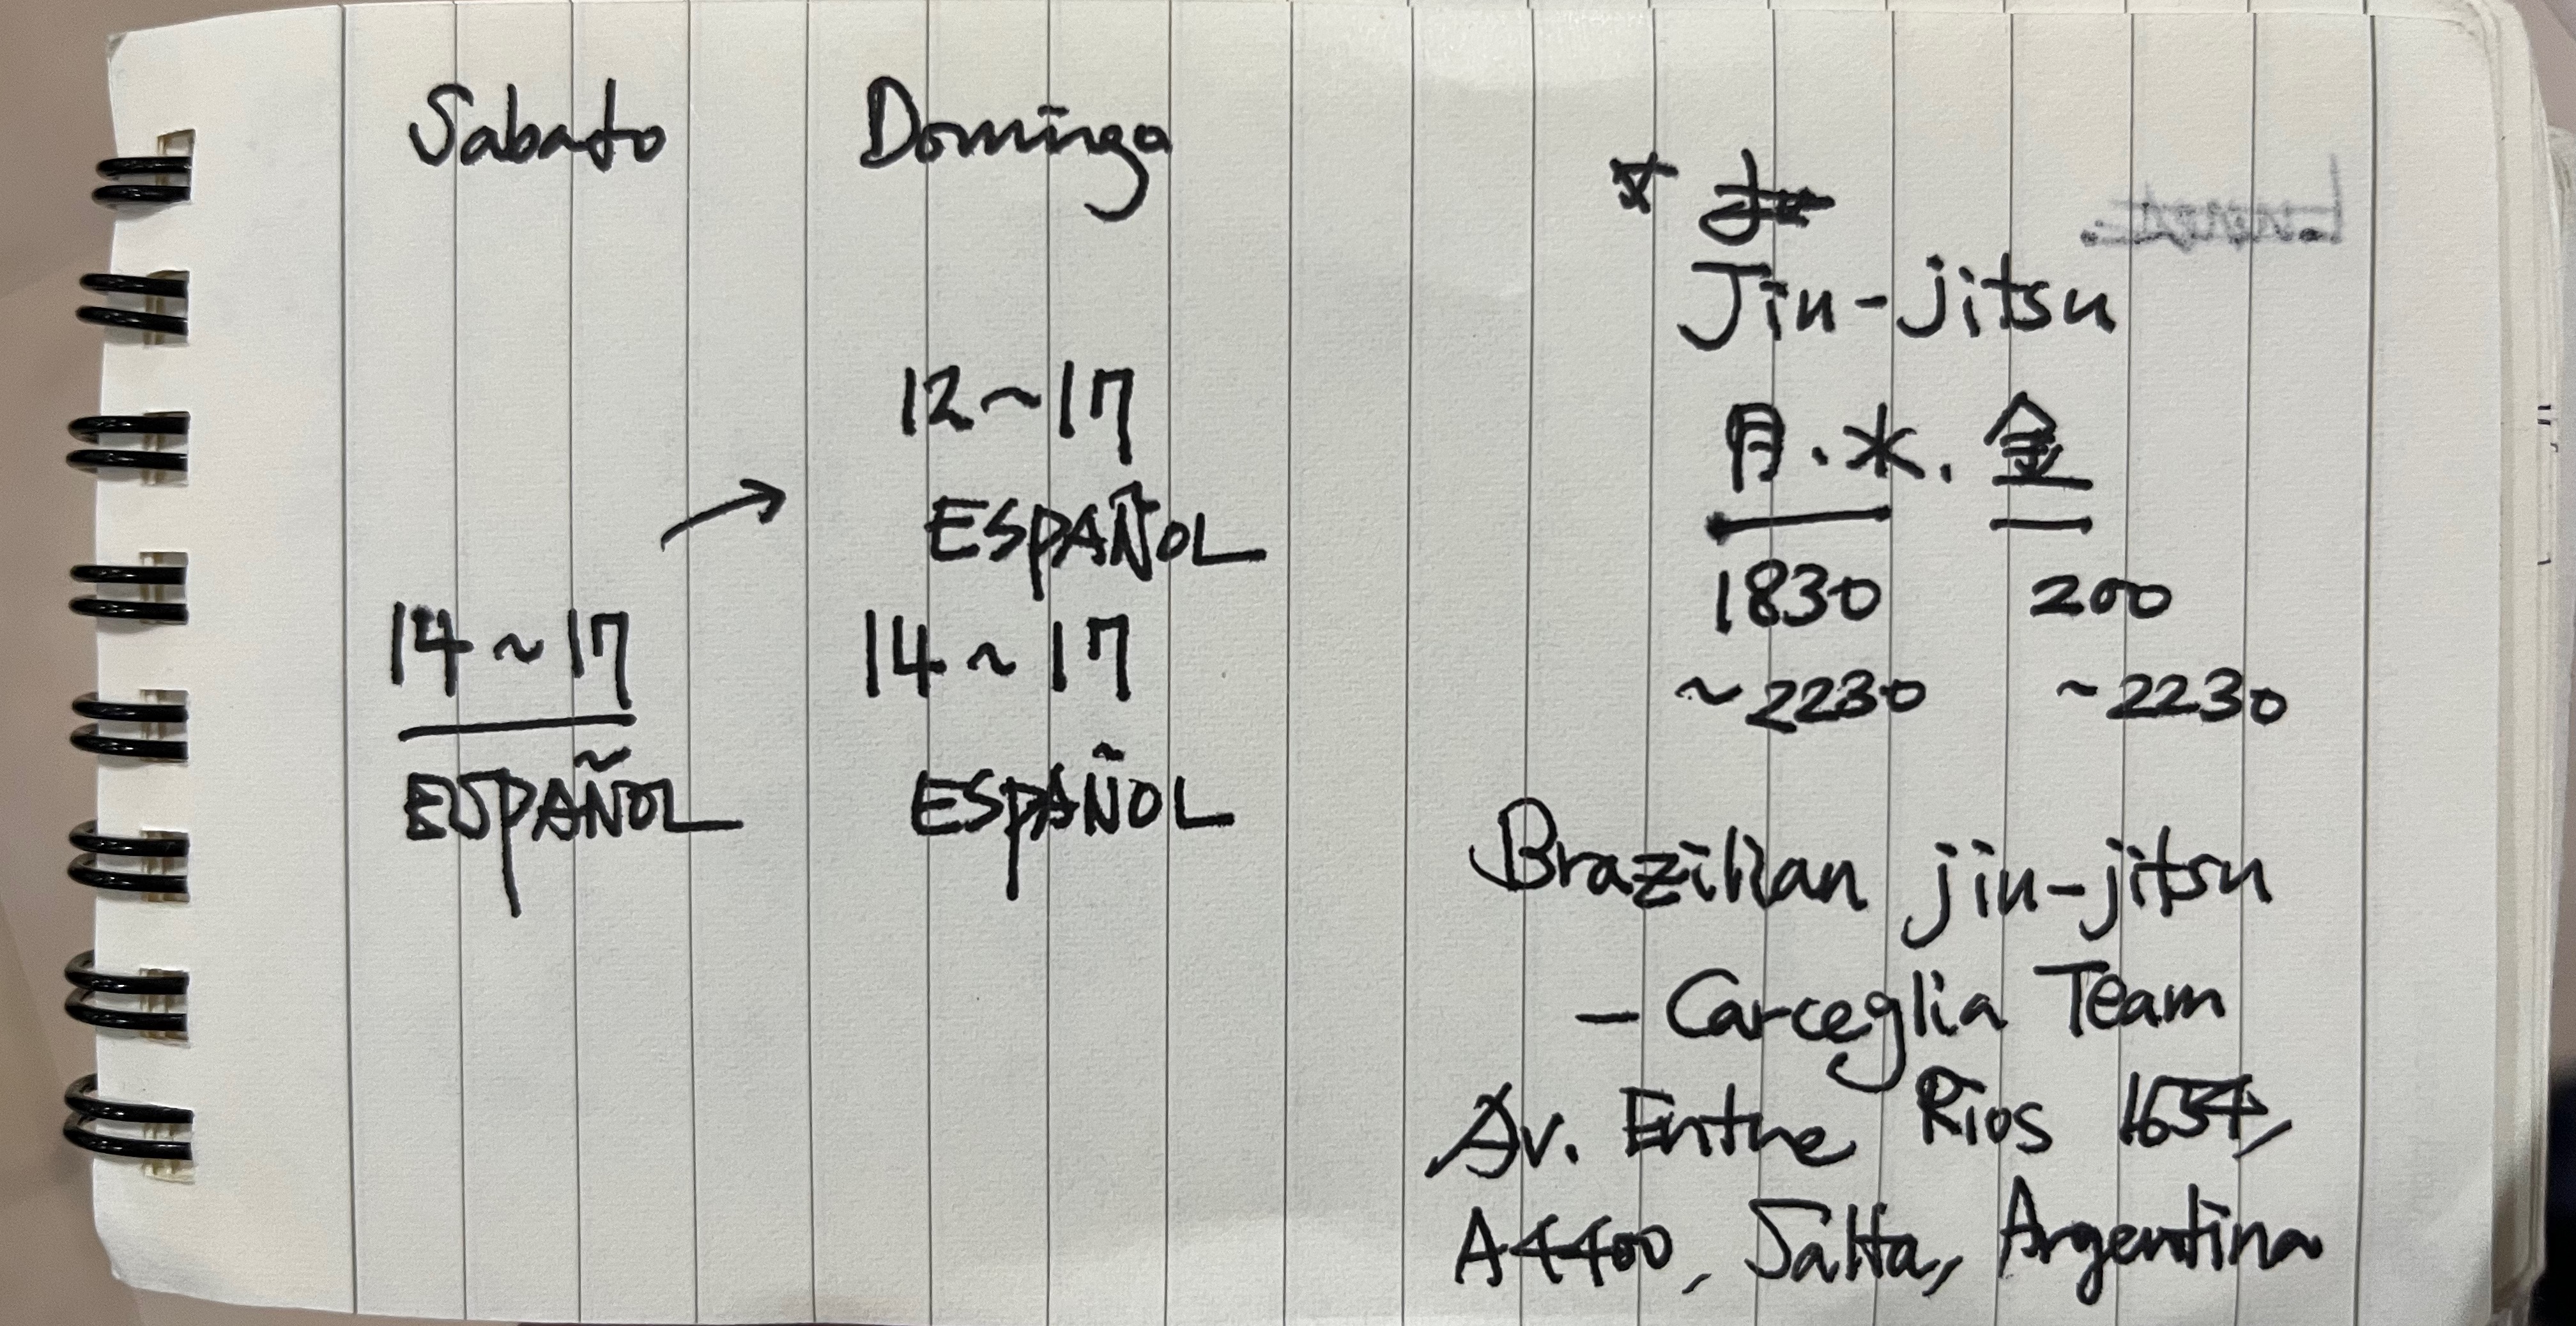 Sabato
14~17
ESPAÑOL
→
Domingo
12~17
ESPAÑOL
14~17
ESPAÑOL
Jiu-jitsu
月.水.金
1830 200
~2230 ~2230
Brazilian jiu-jitsu
- Carceglia Team
Av. Entre Rios 1654,
A4400, Salta, Argentina